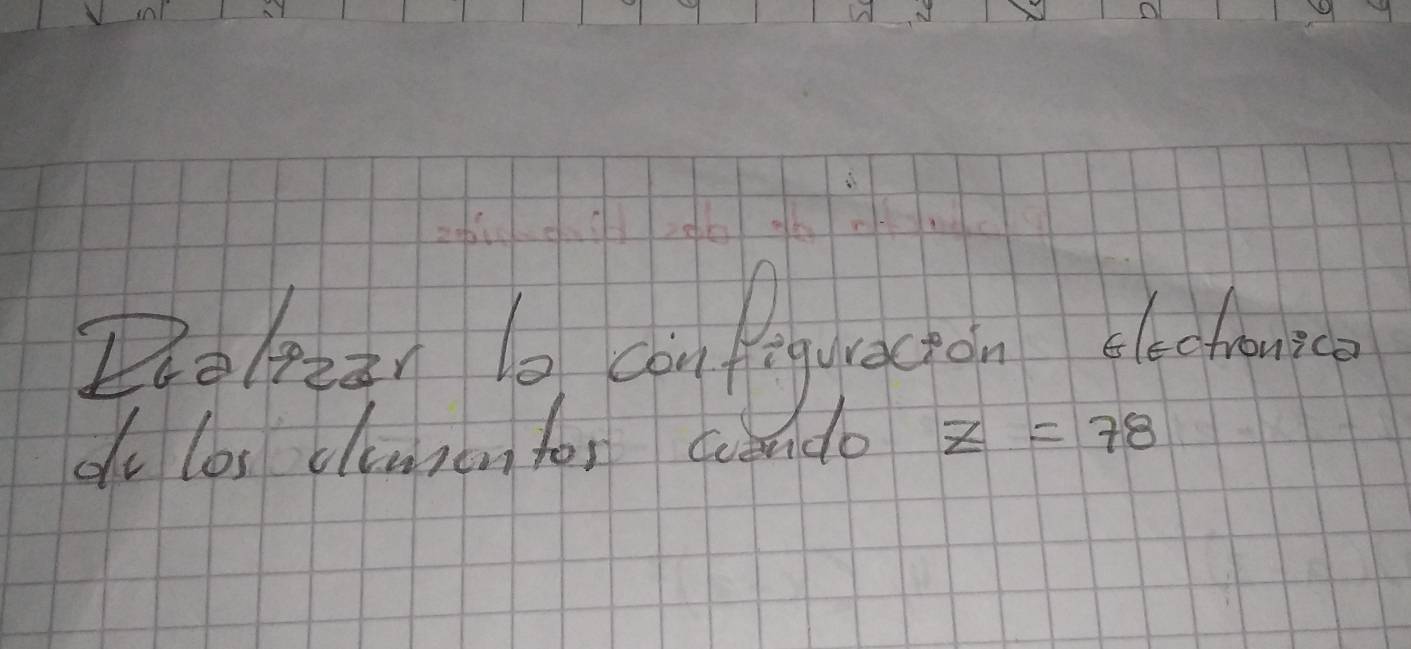 Realizar la configuración electronica
de los elementos cuando z = 78